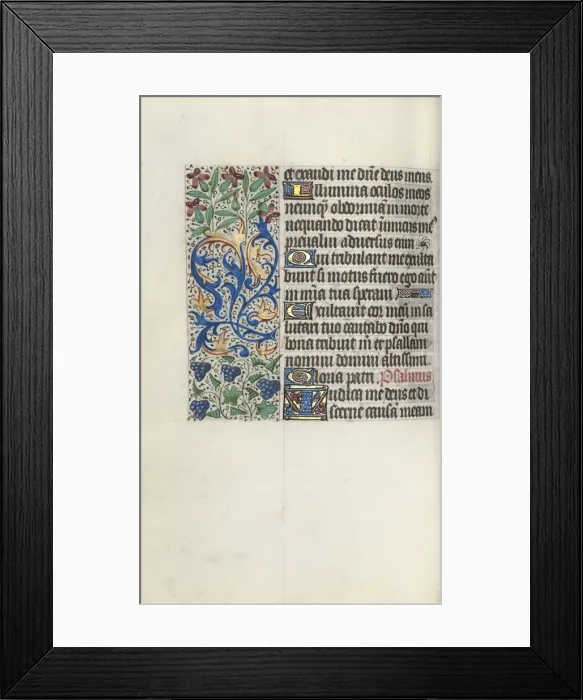 et exaudi me dñe deus meus.
Illumina oculos meos
neunqꝫ obdormiã in morte
nequando dicat inimicus meꝰ
prevalui adversus eum
Qui tribulant me exulta
bunt si motus fuero ego aũt
in mĩa tua speravi
Exultavit cor meũ in sa
lutari tuo cantabo dño qui
bona tribuit m̃ et psallam
nomini domini altissimi.
Gloria patri. Psalmus
Iudica me deus et di
scerne causã meam